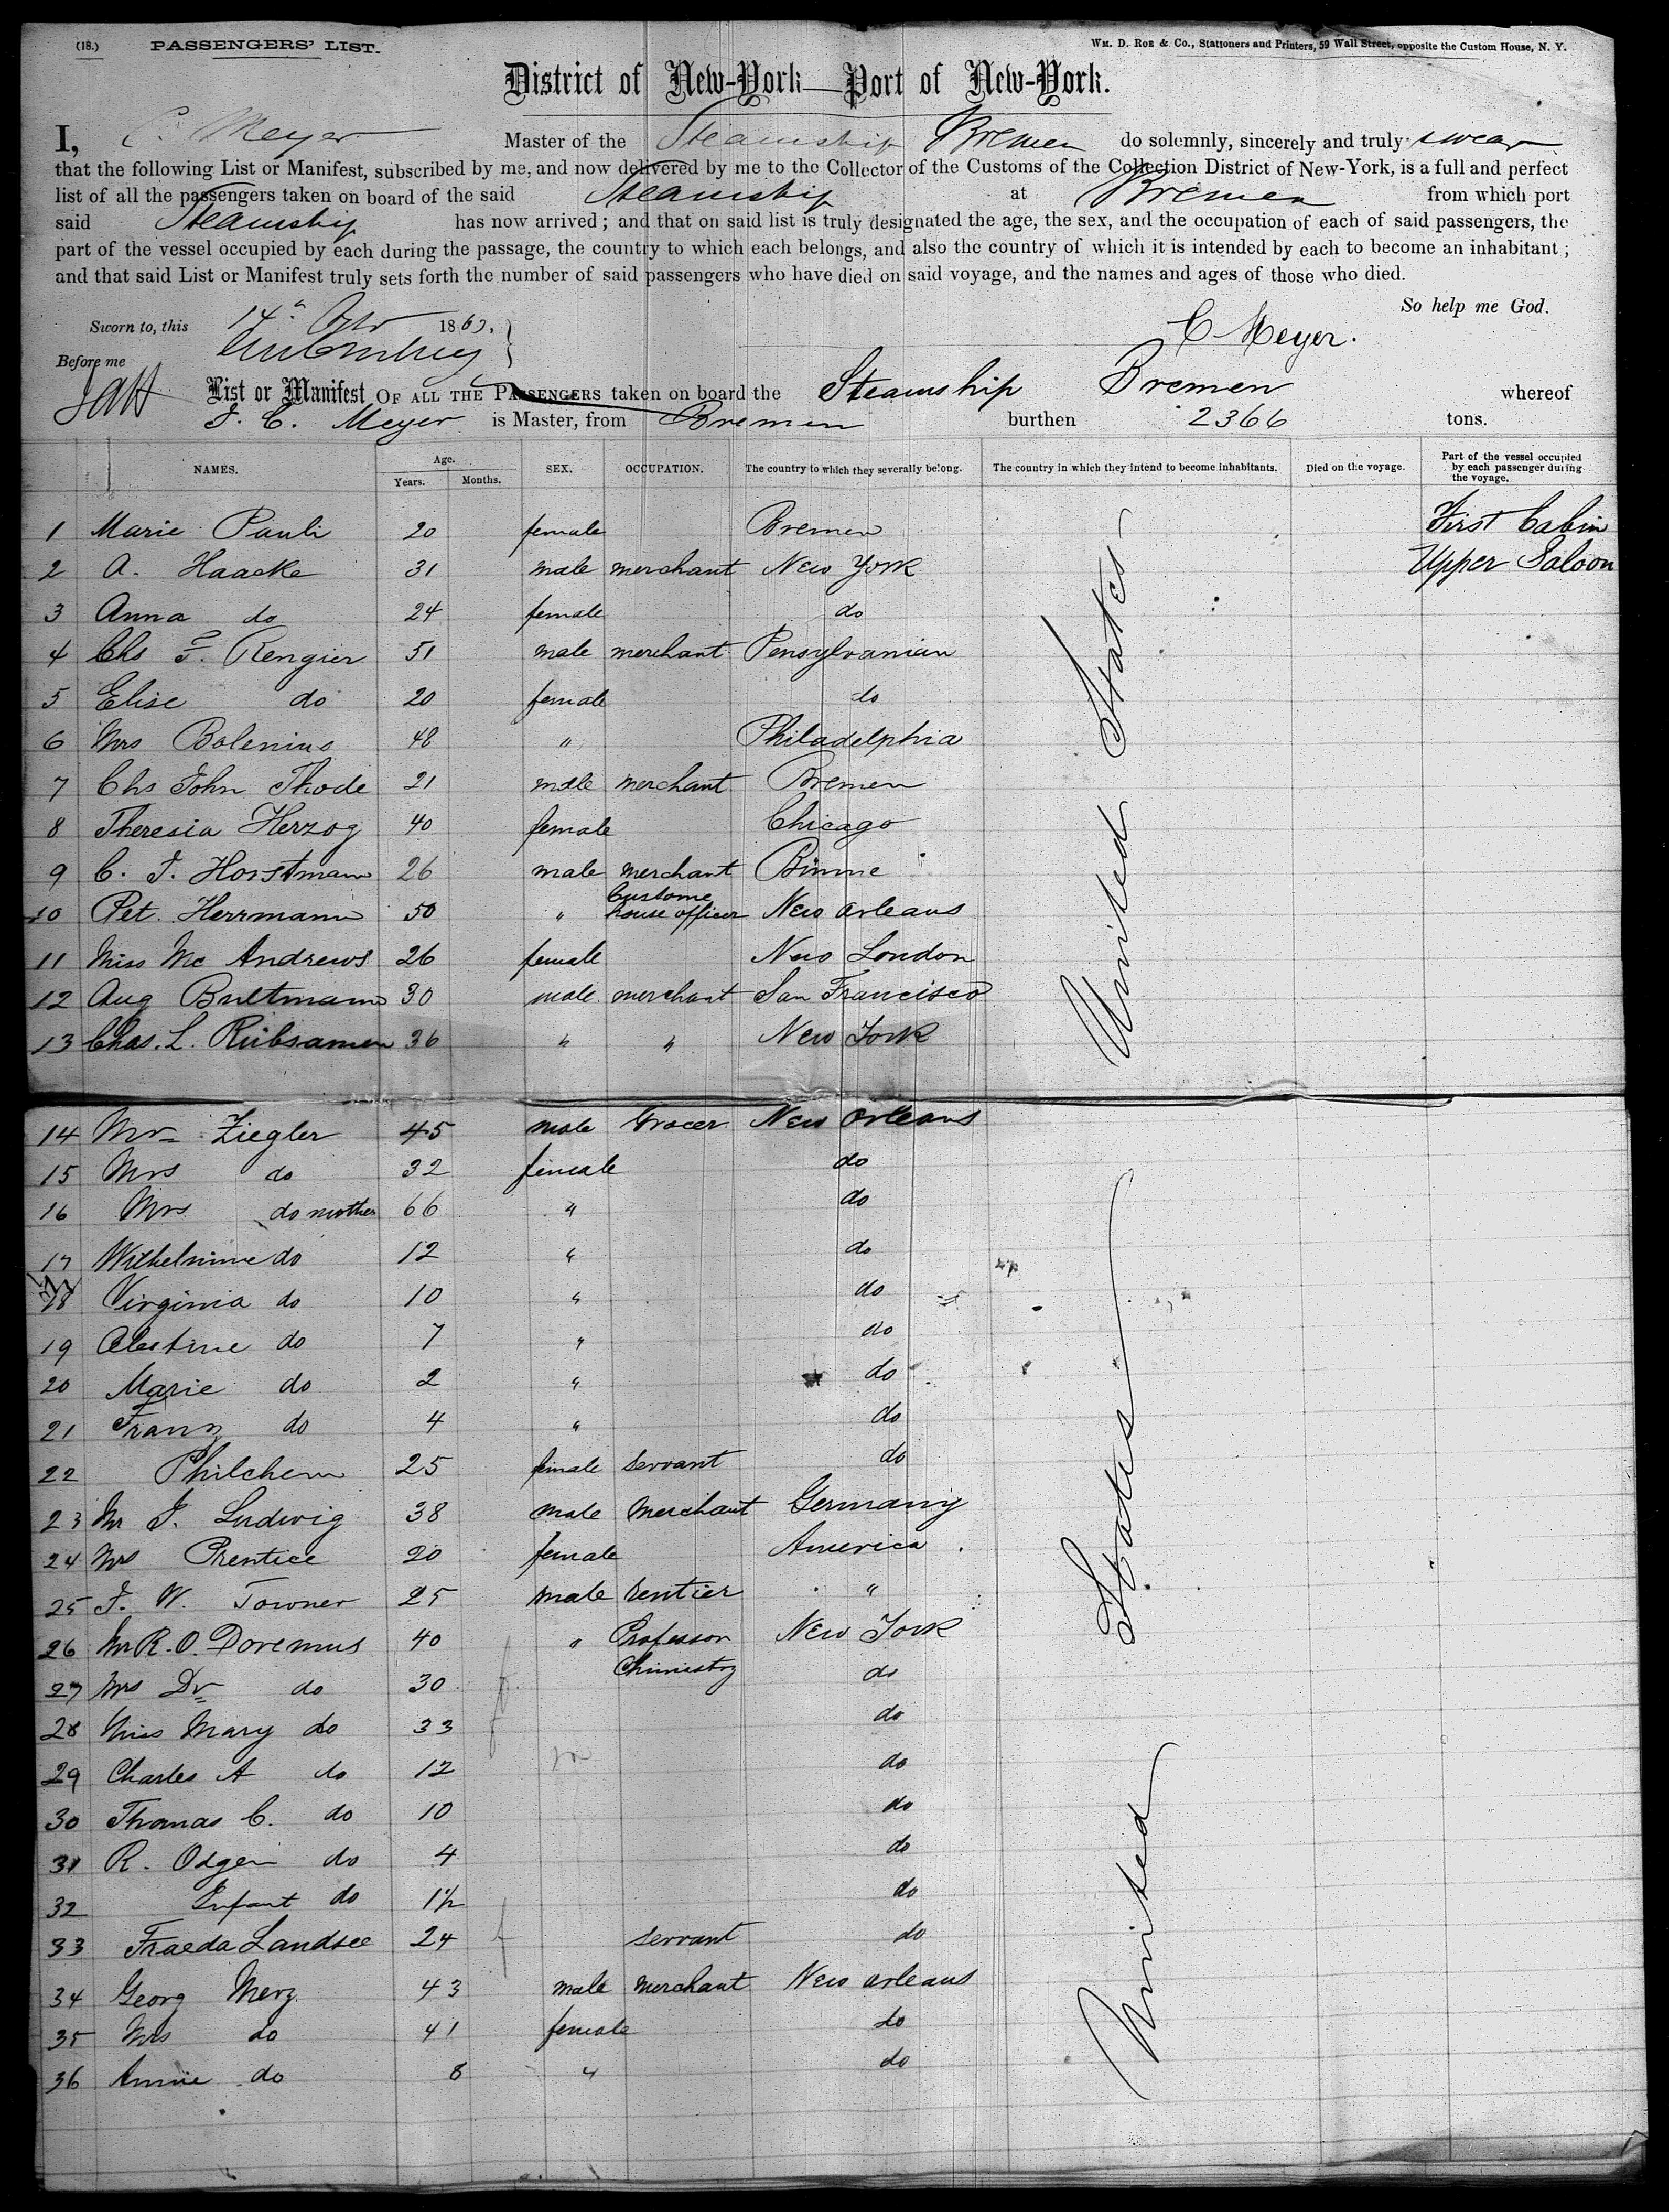 (18.) PASSENGERS' LIST. WM. D. ROE & Co., Stationers and Printers, 59 Wall Street, opposite the Custom House, N. Y.
District of New-York—Port of New-York.
I, C. Meyer Master of the Steamship Bremen do solemnly, sincerely and truly swear
that the following List or Manifest, subscribed by me, and now delivered by me to the Collector of the Customs of the Collection District of New-York, is a full and perfect
list of all the passengers taken on board of the said Steamship at Bremen from which port
said Steamship has now arrived; and that on said list is truly designated the age, the sex, and the occupation of each of said passengers, the
part of the vessel occupied by each during the passage, the country to which each belongs, and also the country of which it is intended by each to become an inhabitant;
and that said List or Manifest truly sets forth the number of said passengers who have died on said voyage, and the names and ages of those who died.
So help me God.
Sworn to, this 14th 186
C Meyer.
Before me
List or Manifest OF ALL THE PASSENGERS taken on board the Steamship Bremen whereof
C. Meyer is Master, from Bremen burthen 2366 tons.
NAMES. Age. Years. Months. SEX. OCCUPATION. The country to which they severally belong. The country in which they intend to become inhabitants. Died on the voyage. Part of the vessel occupied by each passenger during the voyage.
1 Marie Pauli 20 female Bremen First Cabin
2 A. Haacke 31 male merchant New York Upper Saloon
3 Anna do 24 female do
4 Chs F. Rengier 51 male merchant Pensylvanian
5 Elise do 20 female do
6 Mrs Bolenius 48 " Philadelphia
7 Chs John Thode 21 male merchant Bremen
8 Theresia Herzog 40 female Chicago
9 C. F. Horstmann 26 male merchant
10 Pet. Herrmann 50 " Custome house officer New Orleans
11 Miss Mc Andrews 26 female New London
12 Aug Bultmann 30 male merchant San Francisco
13 Chas. L. Rübsamen 36 " " New York
United States
14 Mr Ziegler 45 male Grocer New Orleans
15 Mrs do 32 female do
16 Mrs do mother 66 " do
17 Wilhelmine do 12 " do
18 Virginia do 10 " do
19 do 7 " do
20 Marie do 2 " do
21 Franz do 4 " do
22 Philchen 25 female servant do
23 Mr Ludwig 38 male merchant Germany
24 Mrs Prentice 20 female America
25 W. Towner 25 male rentier "
26 Mr R. O. Doremus 40 " Professor New York
27 Mrs Dr do 30 Chimistry do
28 Miss Mary do 33 do
29 Charles A do 12 m do
30 Thomas C. do 10 do
31 R. Odgen do 4 do
32 Infant do 1½ do
33 Fraeda Landsee 24 servant do
34 Georg Merz 43 male merchant New Orleans
35 Mrs do 41 female do
36 Annie do 8 " do
United States